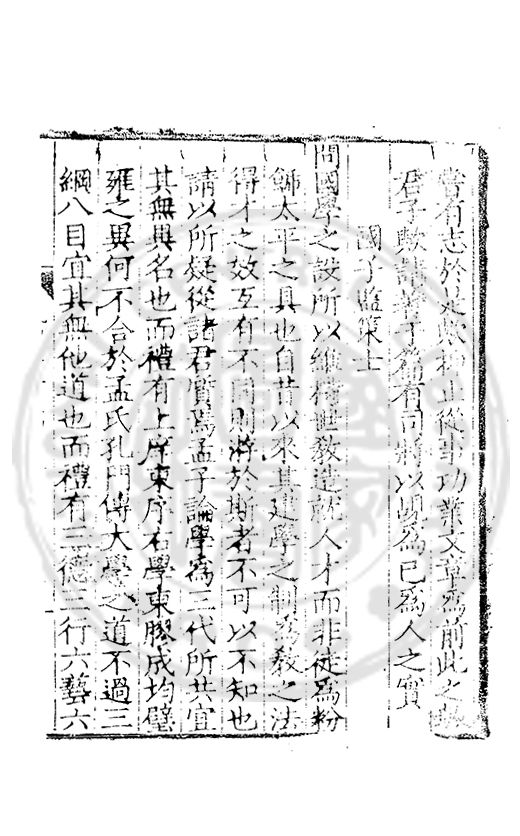 嘗有志於是歟抑止從事功業文章爲前此之
君子歟諸有司將以覘爲已爲人之實
國子監策士
問國學之設所以維持世教造就人才而非徒爲粉
飾太平之具也自昔以來其建學之制爲教之法
得才之效互有不同則游於斯者不可以不知也
請以所疑從諸君質焉孟子論學爲三代所共宜
其無異名也而禮有上庠東序右學東膠成均璧
雍之異何不合於孟氏孔門傳大學之道不過三
綱八目宜其無他道也而禮有三德三行六藝六